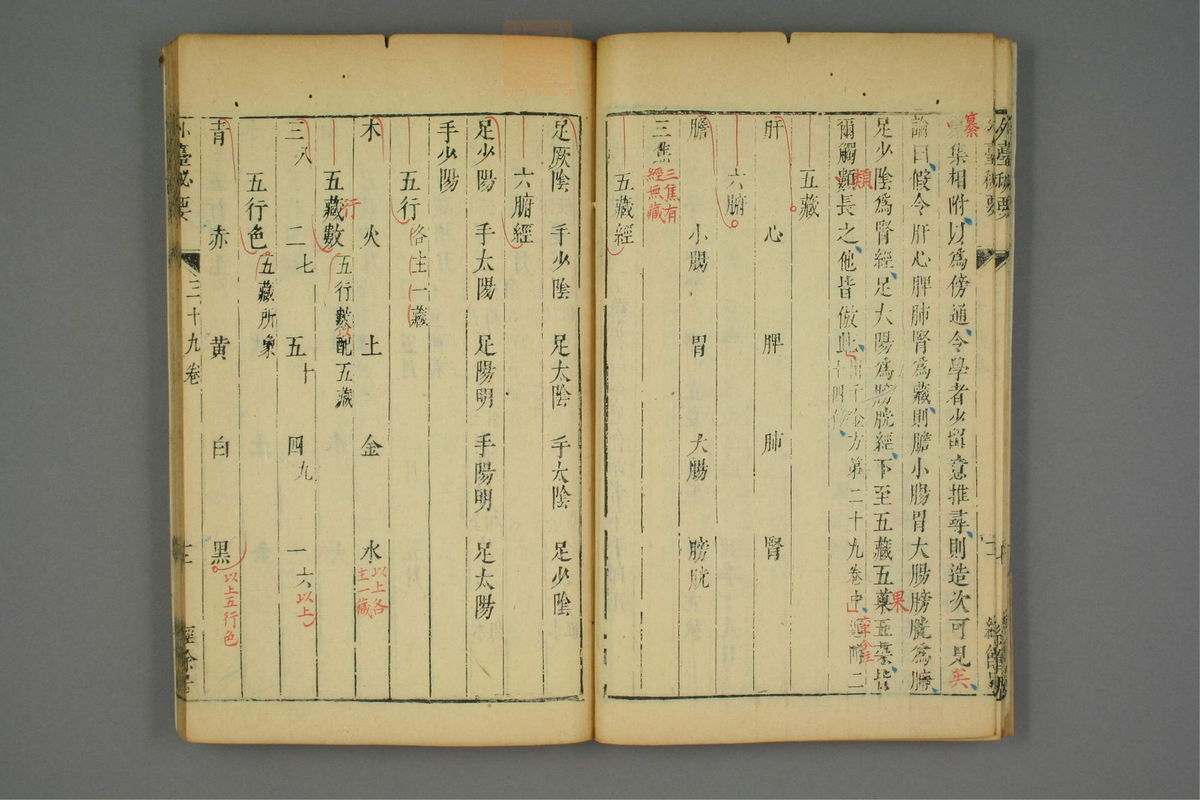 纂
集相附以爲傍通令學者少留意推尋則造次可見矣
論曰假令肝心脾肺腎爲藏則膽小腸胃大腸膀胱爲腑
足少陰爲腎經足太陽爲膀胱經下至五藏五藁五菜皆
果
爾觸類長之他皆倣此
顙
千金方第二十九卷中
五藏
肝 心 脾 肺 腎
六腑
膽 小腸 胃 大腸 膀胱
三焦
三焦有
經無藏
五藏經
足厥陰 手少陰 足太陰 手太陰 足少陰
六腑經
足少陽 手太陽 足陽明 手陽明 足太陽
手少陽
五行 各主一藏
木 火 土 金 水
以上各
主一藏
五藏數 五行數配五藏
行
以
三八 二七 五十 四九 一六
以上
五行色 五藏所象
青 赤 黄 白 黑
以上五行色
外臺秘要 三十九卷 經餘居